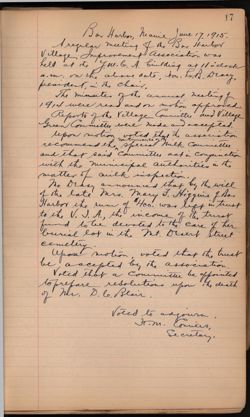 17
Bar Harbor, Maine June 17, 1915.
A regular meeting of the Bar Harbor
Village Improvement Association was
held at the Y.W.C.A. building at 11 o'clock
a.m. on the above date, Mr. L. B. Deasy,
president, in the chair.
The minutes of the annual meeting for
1914 were read and on motion approved.
Reports of the Village Committee and Village
Green Committee were made and
Upon motion voted that the association
recommend the special Milk Committee
and that said Committee act in conjunction
with the municipal authorities in the
matter of milk inspection.
Mr. Deasy announced that by the will
of the late Mrs. Mary S. Higgins of Bar
Harbor the sum of $100. was left in trust
to the V.I.A., the income of the trust
fund to be devoted to the care of her
burial lot in the Mt. Desert Street
cemetery.
Upon motion voted that the trust
be accepted by the association.
Voted that a Committee be appointed
to prepare resolutions upon the death
of Mr. D. C. Blair.
Voted to adjourn.
Secretary.